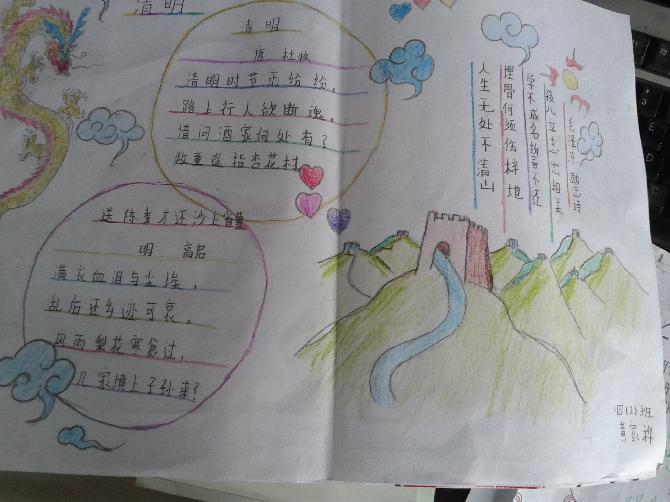 清明
清明
唐 杜牧
清明时节雨纷纷,
路上行人欲断魂。
借问酒家何处有?
牧童遥指杏花村
送陈秀才还沙上省墓
明 高启
满衣血泪与尘埃,
乱后还乡亦可哀。
风雨梨花寒食过,
几家坟上子孙来?
毛泽东 励志诗
孩儿立志出相关
学不成名誓不还
埋骨何须伤梓地
人生无处不清山
四(2)班
黄家桦